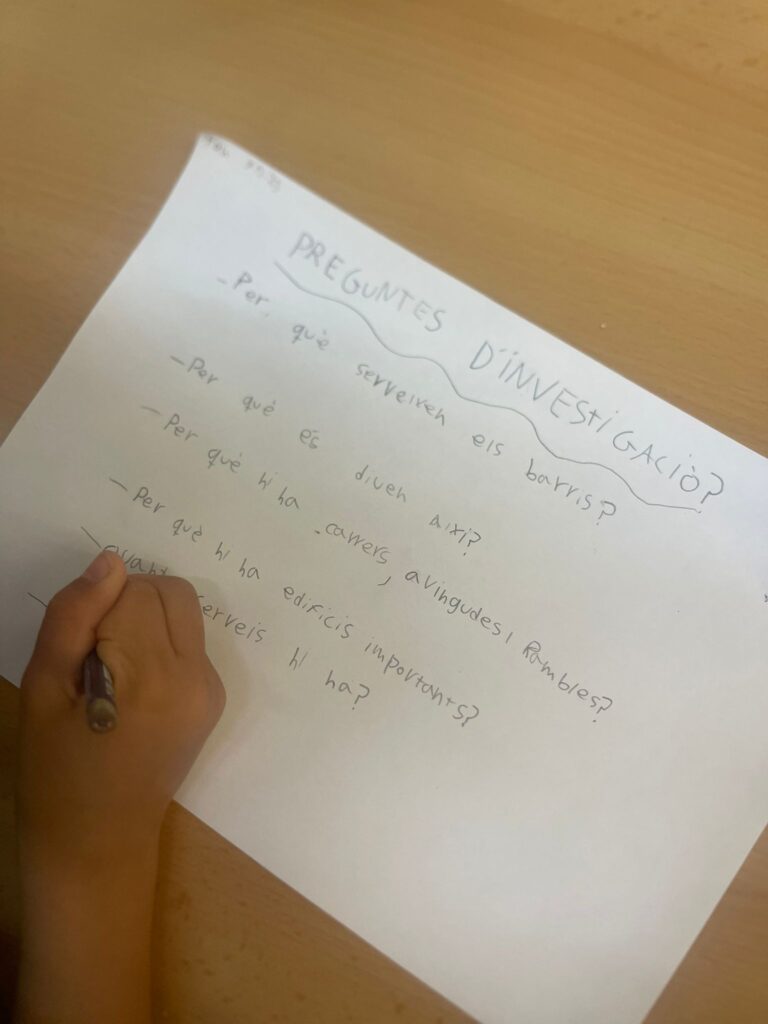 PREGUNTES D'INVESTIGACIÒ?
- Per què serveixen els barris?
- Per què és diuen aixi?
- Per què hi ha carrers, avingudes i Rambles?
- Per què hi ha edificis importants?
- serveis hi ha?
-